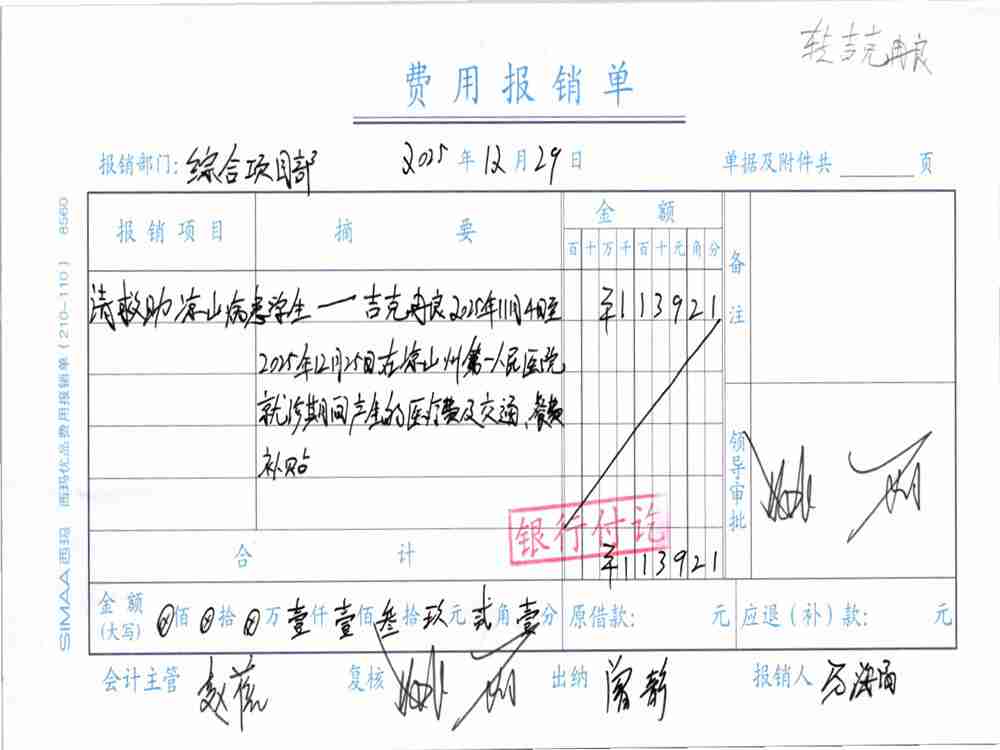 转吉克冉良
费用报销单
报销部门: 综合项目部 2025 年 12 月 29 日 单据及附件共 页
报销项目 摘要 金额 备注
百十万千百十元角分
请救助凉山病患学生一吉克冉良2025年11月4日至 ¥113921
2025年12月25日在凉山州第一人民医院
就诊期间产生的医疗费及交通、餐费
补贴
领导审批
银行付讫
合计 ¥113921
金额(大写) ⊗佰⊗拾⊗万壹仟壹佰叁拾玖元贰角壹分 原借款: 元 应退(补)款: 元
会计主管 复核 出纳 曾静 报销人
SIMAA西玛 西玛优品费用报销单(210-110) 8560